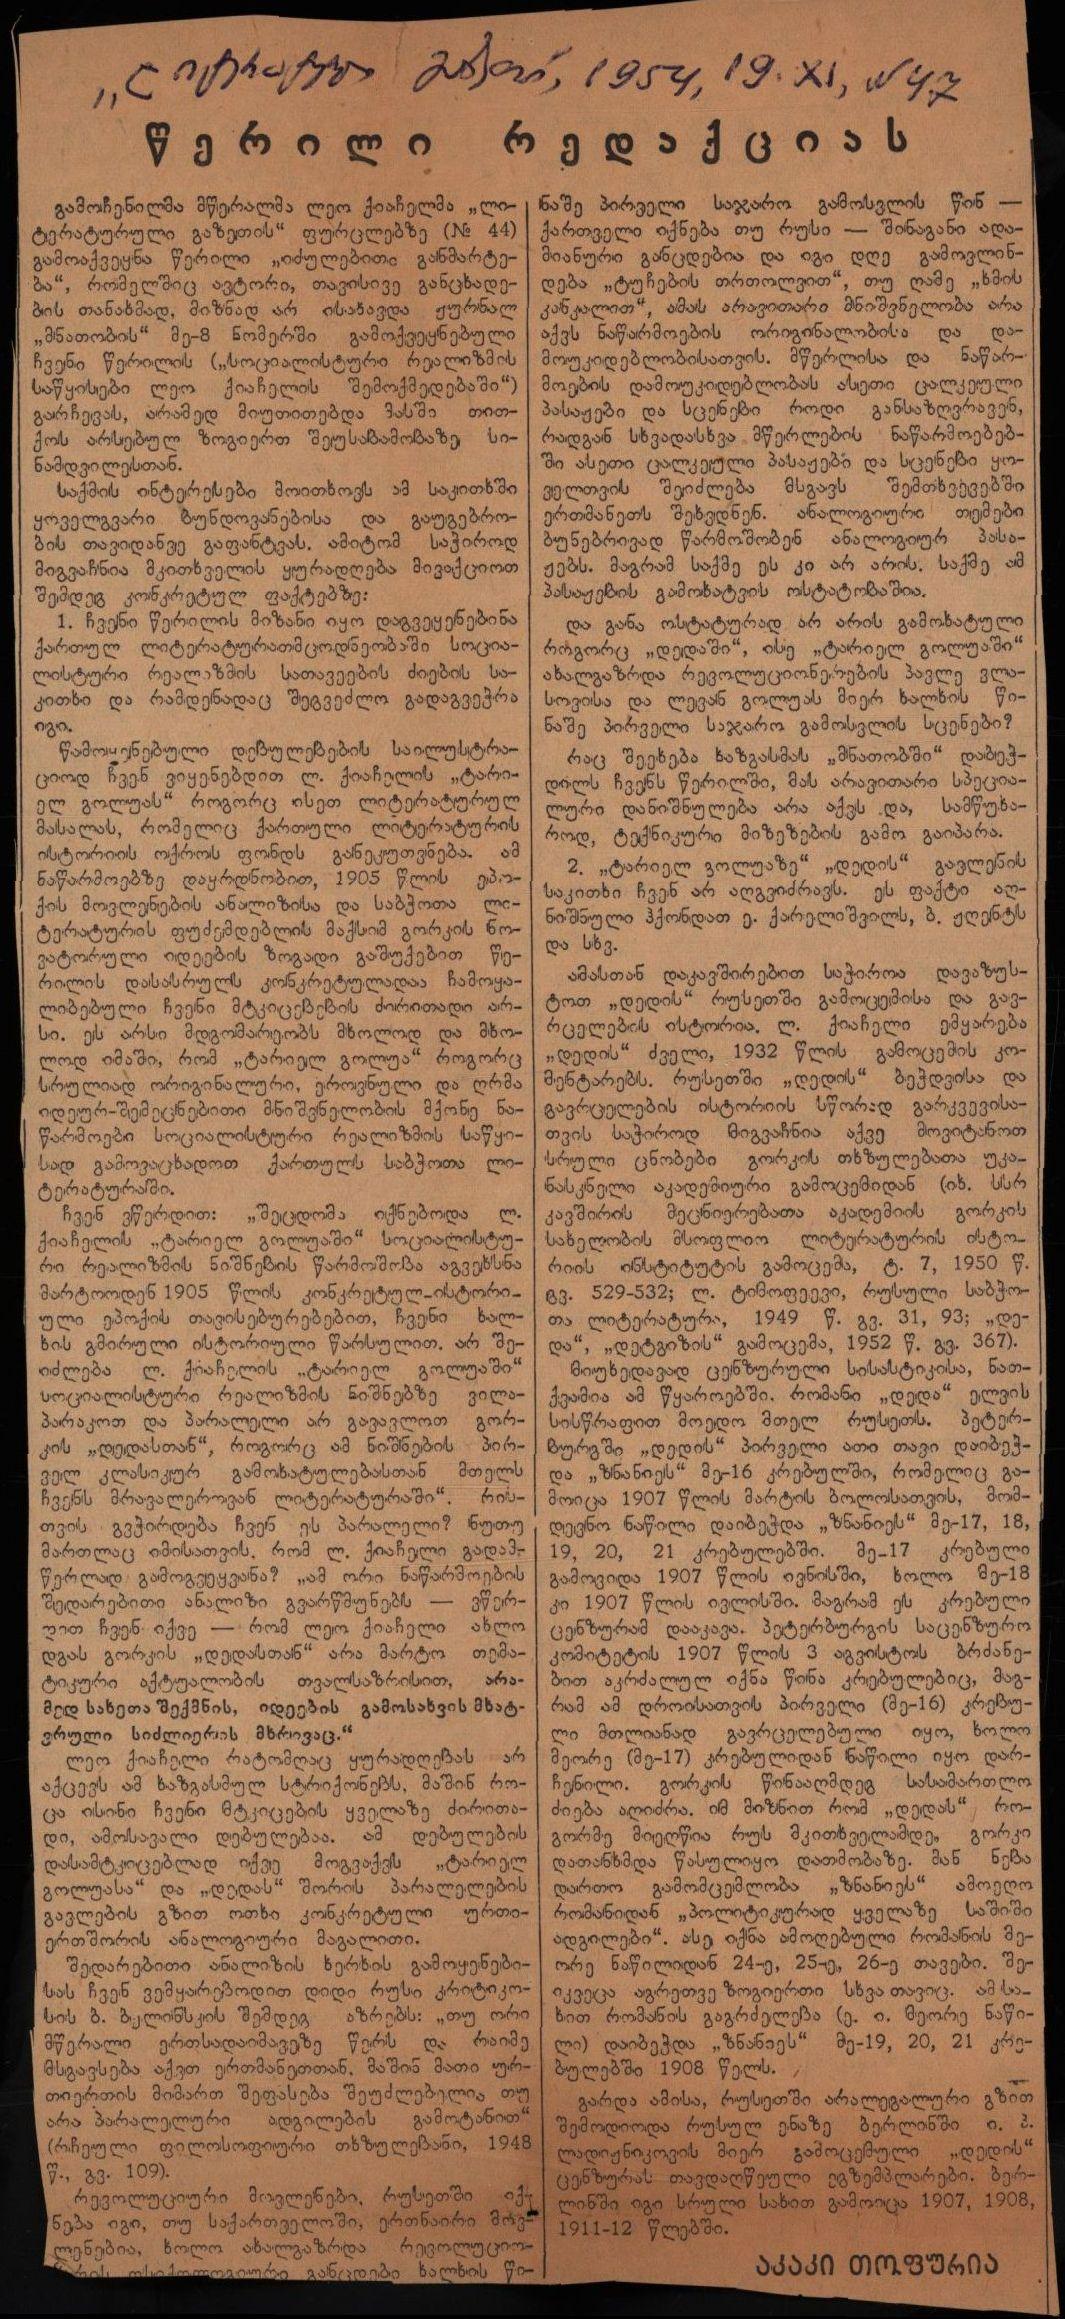 „ლიტერატურული გაზეთი, 1954, 19. XI, №47
წერილი რედაქციას
გამოჩენილმა მწერალმა ლეო ქიაჩელმა „ლი-
ტერატურული გაზეთის“ ფურცლებზე (№ 44)
გამოაქვეყნა წერილი „იძულებითი განმარტე-
ბა“, რომელშიც ავტორი, თავისივე განცხადე-
ბის თანახმად, მიზნად არ ისახავდა ჟურნალ
„მნათობის“ მე-8 ნომერში გამოქვეყნებული
ჩვენი წერილის („სოციალისტური რეალიზმის
საწყისები ლეო ქიაჩელის შემოქმედებაში“)
გარჩევას, არამედ მიუთითებდა მასში თით-
ქოს არსებულ ზოგიერთ შეუსაბამობაზე სი-
ნამდვილესთან.
საქმის ინტერესები მოითხოვს ამ საკითხში
ყოველგვარი ბუნდოვანებისა და გაუგებრო-
ბის თავიდანვე გაფანტვას. ამიტომ საჭიროდ
მიგვაჩნია მკითხველის ყურადღება მივაქციოთ
შემდეგ კონკრეტულ ფაქტებზე:
1. ჩვენი წერილის მიზანი იყო დაგვეყენებინა
ქართულ ლიტერატურათმცოდნეობაში სოცია-
ლისტური რეალიზმის სათავეების ძიების სა-
კითხი და რამდენადაც შეგვეძლო გადაგვეჭრა
იგი.
წამოყენებული დებულებების საილუსტრა-
ციოდ ჩვენ ვიყენებდით ლ. ქიაჩელის „ტარი-
ელ გოლუას“ როგორც ისეთ ლიტერატურულ
მასალას, რომელიც ქართული ლიტერატურის
ისტორიის ოქროს ფონდს განეკუთვნება. ამ
ნაწარმოებზე დაყრდნობით, 1905 წლის ეპო-
ქის მოვლენების ანალიზისა და საბჭოთა ლი-
ტერატურის ფუძემდებლის მაქსიმ გორკის ნო-
ვატორული იდეების ზოგადი გაშუქებით წე-
რილის დასასრულს კონკრეტულადაა ჩამოყა-
ლიბებული ჩვენი მტკიცებების ძირითადი არ-
სი. ეს არსი მდგომარეობს მხოლოდ და მხო-
ლოდ იმაში, რომ „ტარიელ გოლუა“ როგორც
სრულიად ორიგინალური, ეროვნული და ღრმა
იდეურ-შემეცნებითი მნიშვნელობის მქონე ნა-
წარმოები სოციალისტური რეალიზმის საწყი-
სად გამოვაცხადოთ ქართულს საბჭოთა ლი-
ტერატურაში.
ჩვენ ვწერდით: „შეცდომა იქნებოდა ლ.
ქიაჩელის „ტარიელ გოლუაში“ სოციალისტუ-
რი რეალიზმის ნიშნების წარმოშობა აგვეხსნა
მარტოოდენ 1905 წლის კონკრეტულ-ისტორი-
ული ეპოქის თავისებურებებით, ჩვენი ხალ-
ხის გმირული ისტორიული წარსულით. არ შე-
იძლება ლ. ქიაჩელის „ტარიელ გოლუაში“
სოციალისტური რეალიზმის ნიშნებზე ვილა-
პარაკოთ და პარალელი არ გავავლოთ გორ-
კის „დედასთან“, როგორც ამ ნიშნების პირ-
ველ კლასიკურ გამოხატულებასთან მთელს
ჩვენს მრავალეროვან ლიტერატურაში“. რის-
თვის გვჭირდება ჩვენ ეს პარალელი? ნუთუ
მართლაც იმისათვის, რომ ლ. ქიაჩელი გადამ-
წერლად გამოგვეყვანა? „ამ ორი ნაწარმოების
შედარებითი ანალიზი გვარწმუნებს — ვწერ-
დით ჩვენ იქვე — რომ ლეო ქიაჩელი ახლო
დგას გორკის „დედასთან“ არა მარტო თემა-
ტიკური აქტუალობის თვალსაზრისით, არა-
მედ სახეთა შექმნის, იდეების გამოსახვის მხატ-
ვრული სიძლიერის მხრივაც.“
ლეო ქიაჩელი რატომღაც ყურადღებას არ
აქცევს ამ ხაზგასმულ სტრიქონებს, მაშინ რო-
ცა ისინი ჩვენი მტკიცების ყველაზე ძირითა-
დი, ამოსავალი დებულებაა. ამ დებულების
დასამტკიცებლად იქვე მოგვაქვს „ტარიელ
გოლუასა“ და „დედას“ შორის პარალელების
გავლების გზით ოთხი კონკრეტული ურთი-
ერთშორის ანალოგიური მაგალითი.
შედარებითი ანალიზის ხერხის გამოყენები-
სას ჩვენ ვემყარებოდით დიდი რუსი კრიტიკო-
სის ბ. ბელინსკის შემდეგ აზრებს: „თუ ორი
მწერალი ერთსადაიმავეზე წერს და რაიმე
მსგავსება აქვთ ერთმანეთთან, მაშინ მათი ურ-
თიერთის მიმართ შეფასება შეუძლებელია თუ
არა პარალელური ადგილების გამოტანით“
(რჩეული ფილოსოფიური თხზულებანი, 1948
წ., გვ. 109).
რევოლუციური მოვლენები, რუსეთში იქ-
ნება იგი, თუ საქართველოში, ერთნაირი მოვ-
ლენებია, ხოლო ახალგაზრდა რევოლუციო-
ნერის ფსიქოლოგიური განცდები ხალხის წი-
ნაშე პირველი საჯარო გამოსვლის წინ —
ქართველი იქნება თუ რუსი — შინაგანი ადა-
მიანური განცდებია და იგი დღე გამოვლინ-
დება „ტუჩების თრთოლვით“, თუ ღამე „ხმის
კანკალით“, ამას არავითარი მნიშვნელობა არა
აქვს ნაწარმოების ორიგინალობისა და და-
მოუკიდებლობისათვის. მწერლისა და ნაწარ-
მოების დამოუკიდებლობას ასეთი ცალკეული
პასაჟები და სცენები როდი განსაზღვრავენ,
რადგან სხვადასხვა მწერლების ნაწარმოებებ-
ში ასეთი ცალკეული პასაჟები და სცენები ყო-
ველთვის შეიძლება მსგავს შემთხვევებში
ერთმანეთს შეხვდნენ. ანალოგიური თემები
ბუნებრივად წარმოშობენ ანალოგიურ პასა-
ჟებს. მაგრამ საქმე ეს კი არ არის. საქმე ამ
პასაჟების გამოხატვის ოსტატობაშია.
და განა ოსტატურად არ არის გამოხატული
როგორც „დედაში“, ისე „ტარიელ გოლუაში“
ახალგაზრდა რევოლუციონერების პავლე ვლა-
სოვისა და ლევან გოლუას მიერ ხალხის წი-
ნაშე პირველი საჯარო გამოსვლის სცენები?
რაც შეეხება ხაზგასმას „მნათობში“ დაბეჭ-
დილს ჩვენს წერილში, მას არავითარი სპეცია-
ლური დანიშნულება არა აქვს და, სამწუხა-
როდ, ტექნიკური მიზეზების გამო გაიპარა.
2. „ტარიელ გოლუაზე“ „დედის“ გავლენის
საკითხი ჩვენ არ აღგვიძრავს. ეს ფაქტი აღ-
ნიშნული ჰქონდათ ე. ქარელიშვილს, ბ. ჟღენტს
და სხვ.
ამასთან დაკავშირებით საჭიროა დავაზუს-
ტოთ „დედის“ რუსეთში გამოცემისა და გავ-
რცელების ისტორია. ლ. ქიაჩელი ემყარება
„დედის“ ძველი, 1932 წლის გამოცემის კო-
მენტარებს. რუსეთში „დედის“ ბეჭდვისა და
გავრცელების ისტორიის სწორად გარკვევისა-
თვის საჭიროდ მიგვაჩნია აქვე მოვიტანოთ
სრული ცნობები გორკის თხზულებათა უკა-
ნასკნელი აკადემიური გამოცემიდან (იხ. სსრ
კავშირის მეცნიერებათა აკადემიის გორკის
სახელობის მსოფლიო ლიტერატურის ისტო-
რიის ინსტიტუტის გამოცემა, ტ. 7, 1950 წ.
გვ. 529-532; ლ. ტიმოფეევი, რუსული საბჭო-
თა ლიტერატურა, 1949 წ. გვ. 31, 93; „დე-
და“, „დეტგიზის“ გამოცემა, 1952 წ. გვ. 367).
მიუხედავად ცენზურული სისასტიკისა, ნათ-
ქვამია ამ წყაროებში, რომანი „დედა“ ელვის
სისწრაფით მოედო მთელ რუსეთს. პეტერ-
ბურგში „დედის“ პირველი ათი თავი დაიბეჭ-
და „ზნანიეს“ მე-16 კრებულში, რომელიც გა-
მოიცა 1907 წლის მარტის ბოლოსათვის, მომ-
დევნო ნაწილი დაიბეჭდა „ზნანიეს“ მე-17, 18,
19, 20, 21 კრებულებში. მე-17 კრებული
გამოვიდა 1907 წლის ივნისში, ხოლო მე-18
კი 1907 წლის ივლისში. მაგრამ ეს კრებული
ცენზურამ დააკავა. პეტერბურგის საცენზურო
კომიტეტის 1907 წლის 3 აგვისტოს ბრძანე-
ბით აკრძალულ იქნა წინა კრებულებიც, მაგ-
რამ ამ დროისათვის პირველი (მე-16) კრებუ-
ლი მთლიანად გავრცელებული იყო, ხოლო
მეორე (მე-17) კრებულიდან ნაწილი იყო დარ-
ჩენილი. გორკის წინააღმდეგ სასამართლო
ძიება აღიძრა. იმ მიზნით რომ „დედას“ რო-
გორმე მიეღწია რუს მკითხველამდე, გორკი
დათანხმდა წასულიყო დათმობაზე. მან ნება
დართო გამომცემლობა „ზნანიეს“ ამოეღო
რომანიდან „პოლიტიკურად ყველაზე საშიში
ადგილები“. ასე იქნა ამოღებული რომანის მე-
ორე ნაწილიდან 24-ე, 25-ე, 26-ე თავები. შე-
იკვეცა აგრეთვე ზოგიერთი სხვა თავიც. ამ სა-
ხით რომანის გაგრძელება (ე. ი. მეორე ნაწი-
ლი) დაიბეჭდა „ზნანიეს“ მე-19, 20, 21 კრე-
ბულებში 1908 წელს.
გარდა ამისა, რუსეთში არალეგალური გზით
შემოდიოდა რუსულ ენაზე ბერლინში ი. პ.
ლადიჟნიკოვის მიერ გამოცემული „დედის“
ცენზურას თავდაღწეული ეგზემპლარები. ბერ-
ლინში იგი სრული სახით გამოიცა 1907, 1908,
1911-12 წლებში.
აკაკი თოფურია